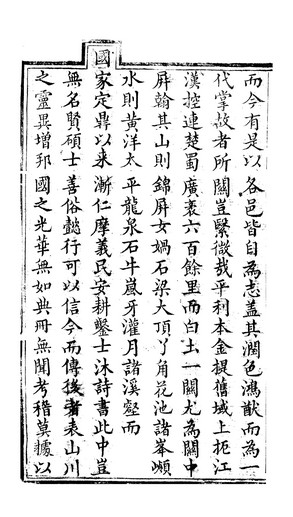 而今有是以各邑皆自為志蓋其潤色鴻猷而為一
代掌故者所關豈繄微哉平利本金提舊域上扼江
漢控連楚蜀廣袤六百餘里而白土一關尤為關中
屏翰其山則錦屏女媧石梁大頂丫角花池諸峯
水則黃洋太平龍泉石牛嵗牙灌月諸溪壑而
國家定鼎以來漸仁摩義民安耕鑿士沐詩書此中豈
無名賢碩士善俗懿行可以信今而傳後者表山川
之靈異增邦國之光華無如典冊無聞考稽莫據以